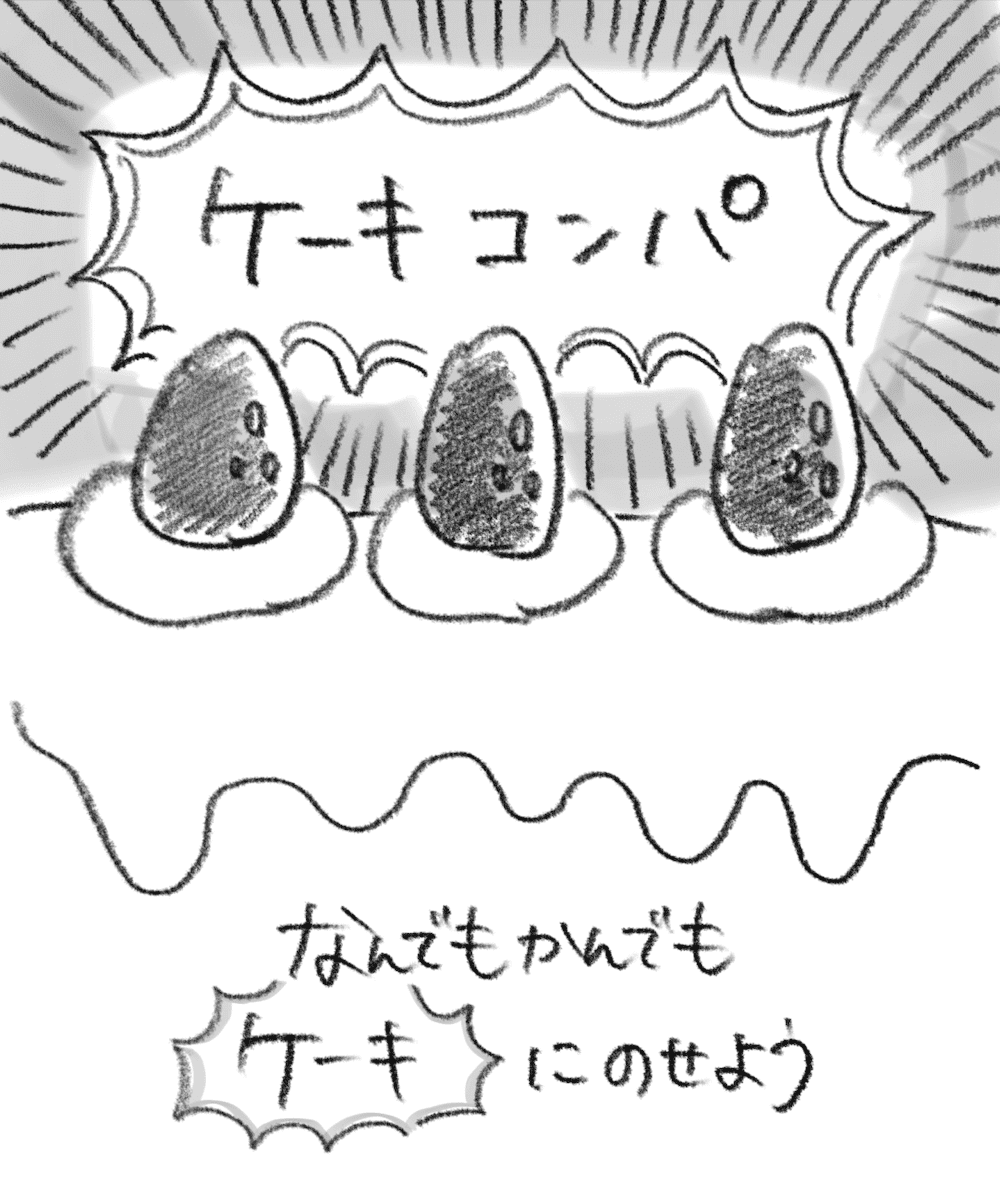 ケーキコンパ
なんでもかんでも
ケーキにのせよう